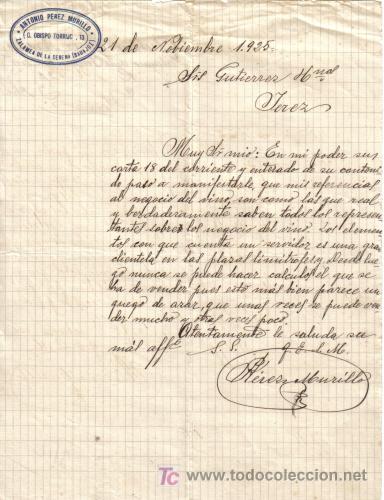 ANTONIO PEREZ MURILLO
O. OBISPO TORRIJC, 13
ZALAMEA DE LA SERENA (BADAJOZ)
21 de Nobiembre 1.925.
Gutierrez Hnos
Jerez
Muy Sr mio: En mi poder sus
carta 18 del corriente y enterado de su conteni-
do paso a manifestarle, que mis referencias
al negocio del vino, son como las que real
y berdaderamente saben todos los represen-
tantes sobre los negocio del vino. Los elemen-
tos con que cuenta un servidor es una gra
clientela en las plazas limitrofes y Desde lue
go nunca se puede hacer calculos el que se
ha de vender pues esto más bien parece un
guego de azar, que unas veces se puede ven
der mucho y otras veces poco
Atentamente le saluda su
más affc S. S. q E. l. M.
Perez Murillo
TC www.todocoleccion.net